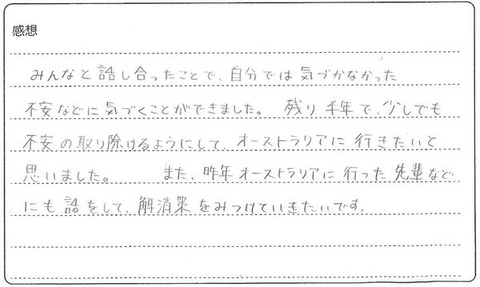 感想
みんなと話し合ったことで、自分では気づかなかった
不安などに気づくことができました。 残り半年で、少しでも
不安の取り除けるようにして、オーストラリアに行きたいと
思いました。 また、昨年オーストラリアに行った先輩など
にも話をして、解消策をみつけていきたいです。